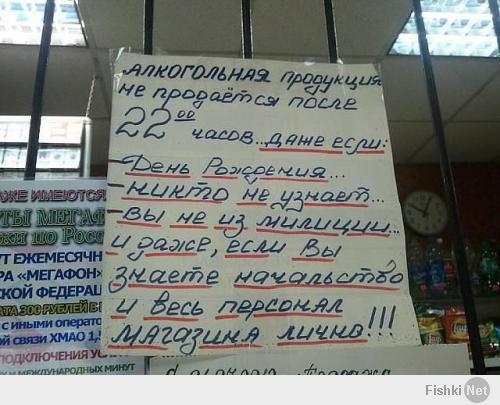 АЛКОГОЛЬНАЯ продукция
не продаётся после
22 00 часов... даже если:
- День Рождения...
- никто не узнает...
- вы не из милиции...
и даже, если Вы
знаете начальство
и весь персонал
магазина лично!!!
ЖЕ ИМЕЮТСЯ
ТЫ МЕГАФ
ки по Росс
УТ ЕЖЕМЕСЯЧН
РА «МЕГАФОН»
СКОЙ ФЕДЕРАЦ
АТА 300 РУБЛЕЙ В
С ИНЫМИ ОПЕРАТО
ОЙ СВЯЗИ ХМАО 1,
ПОДКЛЮЧЕНИЯ УСЛ
И МЕЖДУНАРОДНЫХ МИНУТ
Fishki.Net